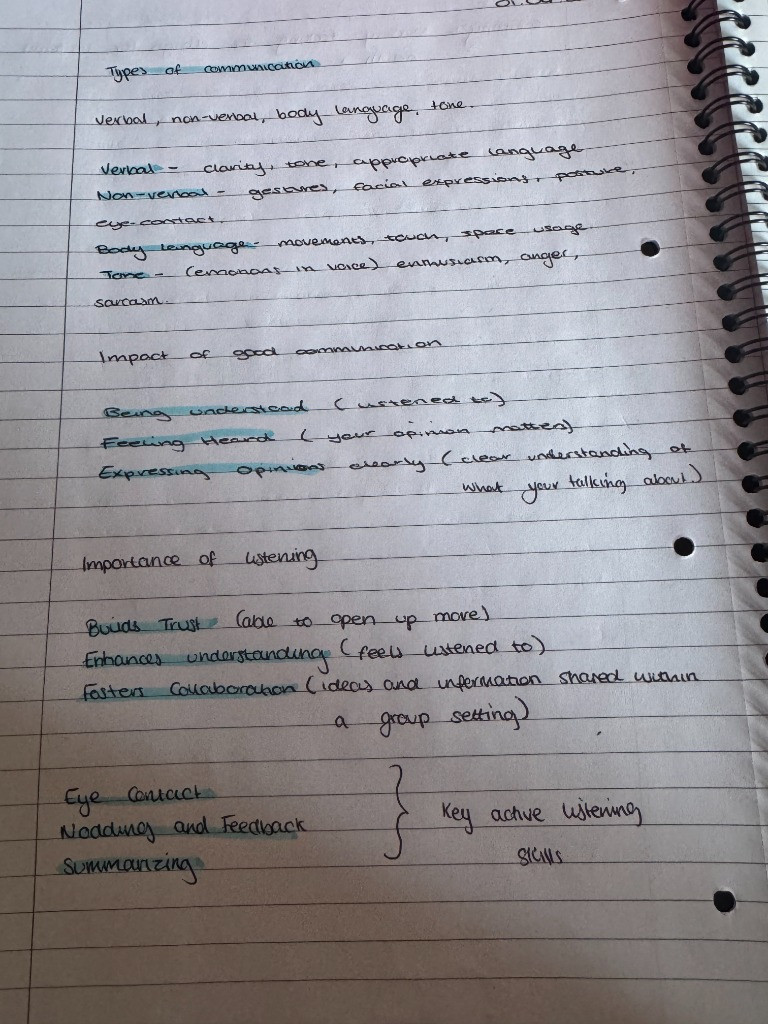 Types of communication
verbal, non-verbal, body language, tone.
Verbal - clarity, tone, appropriate language
Non-verbal - gestures, facial expressions, posture,
eye-contact.
Body language - movements, touch, space usage
Tone - (emotions in voice) enthusiasm, anger,
sarcasm.
Impact of good communication
Being understood (listened to)
Feeling Heard (your opinion matters)
Expressing opinions clearly (clear understanding of
what your talking about)
Importance of listening
Builds Trust (able to open up more)
Enhances understanding (feels listened to)
Fosters Collaboration (ideas and information shared within
a group setting)
Eye Contact
Nodding and Feedback
Summarizing
Key active listening
skills